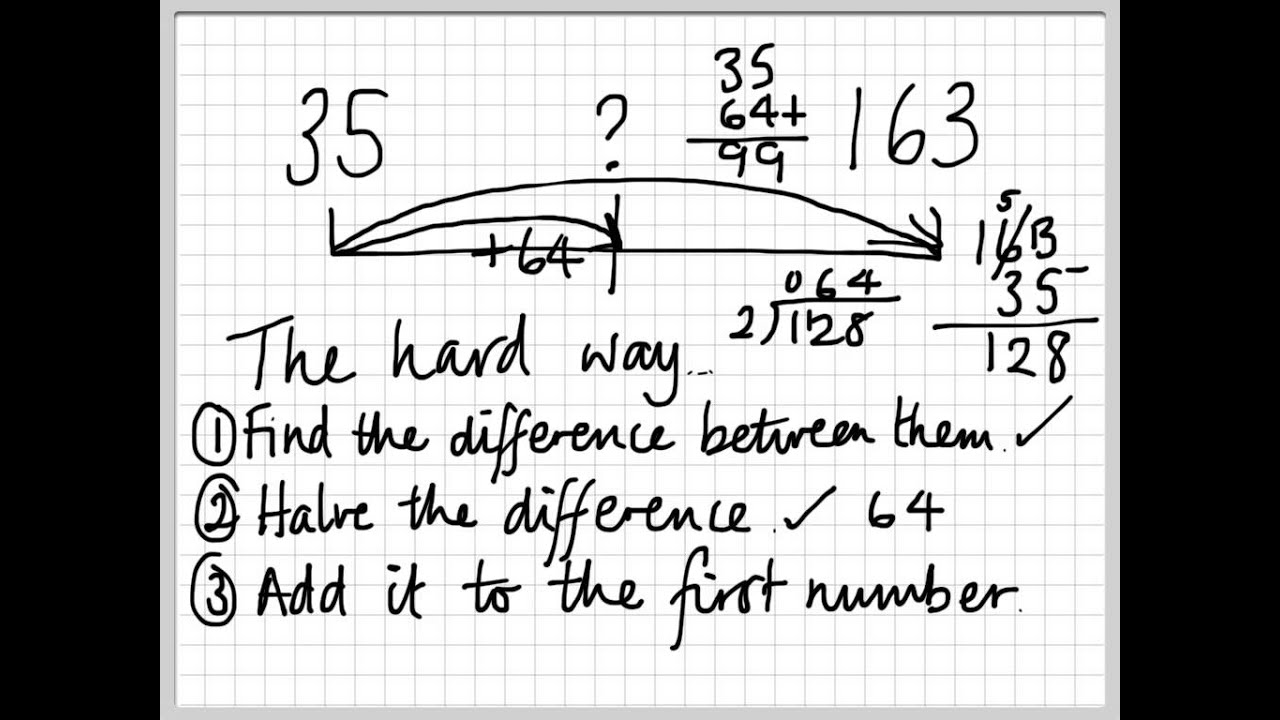 35
64+
99
35 ? 163
+64
5
1613
35-
128
064
2)128
The hard way...
① Find the difference between them. ✓
② Halve the difference. ✓ 64
③ Add it to the first number.